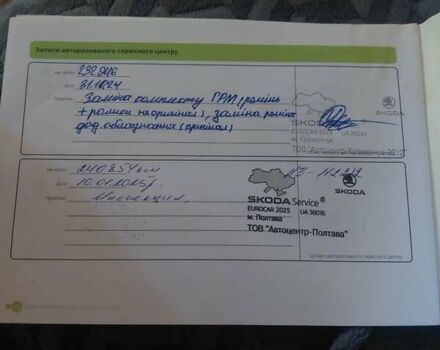 Записи авторизованого сервісного центру
292946
Дата 31.12.24
Примітки Заміна комплекту ГРМ (ремінь
+ ролики не оригінал), заміна ременя
дод. обладнання (оригінал)
SKODA
EUROCAR 2025 UA 38028
м. Кременчук
ТОВ "Автоцентр-Кременчук-2012"
240854 км
Дата 10.01.2025р.
SKODA Service®
SKODA
EUROCAR 2025 UA 38016
м. Полтава
ТОВ "Автоцентр-Полтава"
Штамп авторизованого сервісного центру